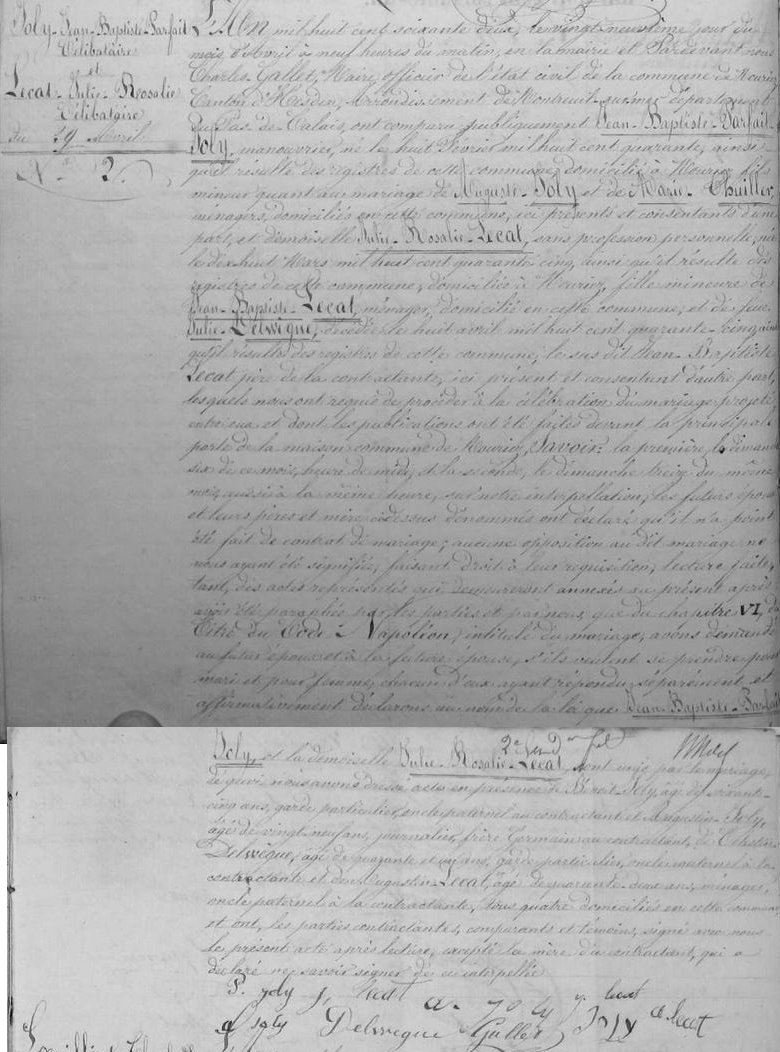 Joly Jean-Baptiste-Parfait
Célibataire
et
Lecat-Julie-Rosalie
Célibataire
du 29 Avril
N° 2.
L'An mil huit cent soixante deux, le vingt neuvième jour du
mois d'Avril à neuf heures du matin, en la mairie et Pardevant nous
Charles Gallet, Maire, officier de l'état civil de la commune de Mouriez
Canton d'Hesdin, Arrondissement de Montreuil-sur-mer, département
du Pas-de-Calais, ont comparu publiquement Jean-Baptiste-Parfait
Joly, manouvrier, né le huit Février mil huit cent quarante, ainsi
qu'il résulte des registres de cette commune, domicilié à Mouriez fils
mineur quant au mariage de Auguste Joly et de Marie Thuillier,
ménagers, domiciliés en cette commune, ici présents et consentants d'une
part, et demoiselle Julie-Rosalie-Lecat, sans profession personnelle, née
le dix huit Mars mil huit cent quarante cinq, ainsi qu'il résulte des
registres de cette commune, domiciliée à Mouriez, fille mineure de
Jean-Baptiste-Lecat, ménager, domicilié en cette commune, et de feue
Julie-Delwègue, décédée le huit avril mil huit cent quarante-cinq, ainsi
qu'il résulte des registres de cette commune; le sus dit Jean-Baptiste
Lecat père de la contractante, ici présent et consentant d'autre part,
lesquels nous ont requis de procéder à la célébration du mariage projeté
entre eux et dont les publications ont été faites devant la principale
porte de la maison commune de Mouriez, Savoir: la première, le dimanche
six de ce mois, heure de midi, et la seconde, le dimanche treize du même
mois, aussi à la même heure, sur notre interpellation, les futurs époux
et leurs pères et mère ci-dessus dénommés ont déclaré qu'il n'a point
été fait de contrat de mariage; aucune opposition au dit mariage ne
nous ayant été signifiée, faisant droit à leur réquisition, lecture faite,
tant, des actes représentés qui demeureront annexés au présent après
avoir été paraphés par les parties et par nous, que du chapitre VI, du
Titre du Code-Napoléon, intitulé du mariage, avons demandé
au futur époux et à la future épouse, s'ils veulent se prendre pour
mari et pour femme, chacun d'eux ayant répondu séparément et
affirmativement déclarons au nom de la loi que Jean-Baptiste-Parfait
Joly, et la demoiselle Julie-Rosalie-Lecat, sont unis par le mariage,
de quoi nous avons dressé acte en présence de Benoit-Joly, âgé de soixante-
cinq ans, garde particulier, oncle paternel au contractant et Augustin-Joly,
âgé de vingt neuf ans, journalier, frère Germain au contractant, de Célestin
Delwègue, âgé de quarante et un ans, garde particulier, oncle maternel à la
contractante et de Augustin-Lecat, âgé de quarante-deux ans, ménager,
oncle paternel à la contractante, tous quatre domiciliés en cette commune
et ont, les parties contractantes, comparants et témoins, signé avec nous
le présent acte après lecture, excepté la mère du contractant, qui a
déclaré ne savoir signer de ce interpellée
P. joly j. lecat a. joly j. lecat
joly Delwegue Gallet Joly a lecat